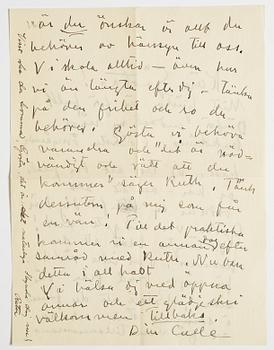 är du önskar vi allt du
behöver av hänsyn till oss.
Vi skola alltid – även hur
vi än längta efter dig – tänka
på den frihet och ro du
behöver. Gösta vi behöva
varandra och "det är nöd-
vändigt och rätt att du
kommer" säger Ruth. Tänk
dessutom på mig som får
en vän! Till det praktiska
kommer vi en annan efter
samråd med Ruth. Nu bara
detta i all hast
Vi hälsa dig med öppna
armar och ett glädjeskri
välkommen tillbaks.
Din Calle